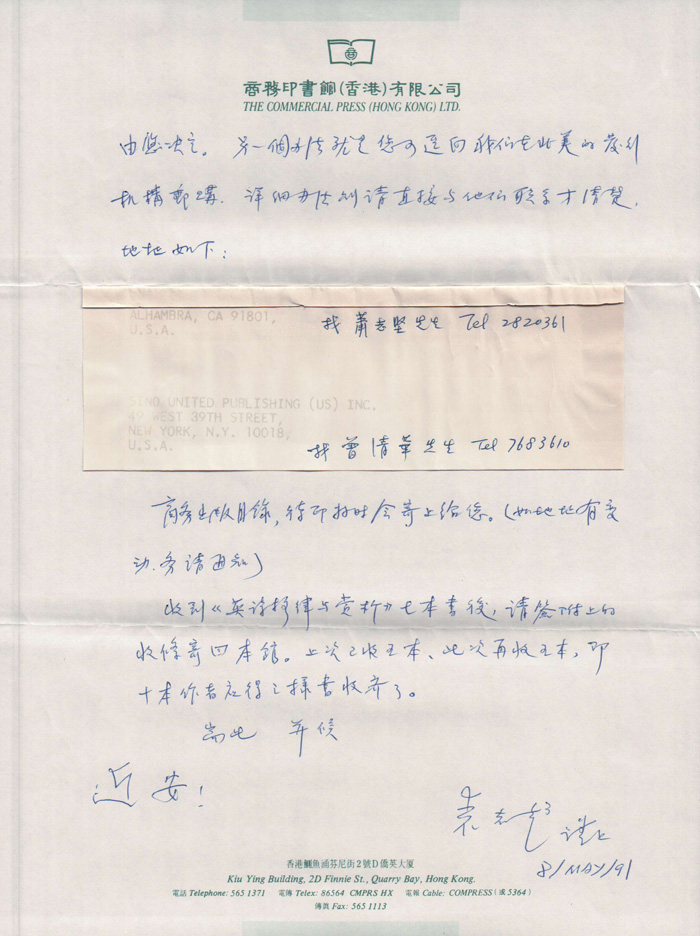 商務印書館(香港)有限公司
THE COMMERCIAL PRESS (HONG KONG) LTD.
由您决定。另一個办法就是您可逕向我們在北美的发行
机構郵購。详细办法则请直接与他们联系才清楚。
地址如下：
ALHAMBRA, CA 91801,
U.S.A.
找 蕭 坚先生 Tel 2820361
SINO UNITED PUBLISHING (US) INC.
49 WEST 39TH STREET,
NEW YORK, N.Y. 10018,
U.S.A.
找 曾清華先生 Tel 7683610
商务出版目録，待印好时会寄上给您。(如地址有变
动，务请通知)
收到《英诗格律与赏析》七本書後，请签下附上的
收條寄回本館。上次已收三本、此次再收七本，即
十本作者应得之樣書收齐了。
耑此 并候
近安！
袁 谨上
8/MAY/91
香港鰂魚涌芬尼街2號D僑英大厦
Kiu Ying Building, 2D Finnie St., Quarry Bay, Hong Kong.
電話 Telephone: 565 1371 電傳 Telex: 86564 CMPRS HX 電報 Cable: COMPRESS (或5364)
傳眞 Fax: 565 1113